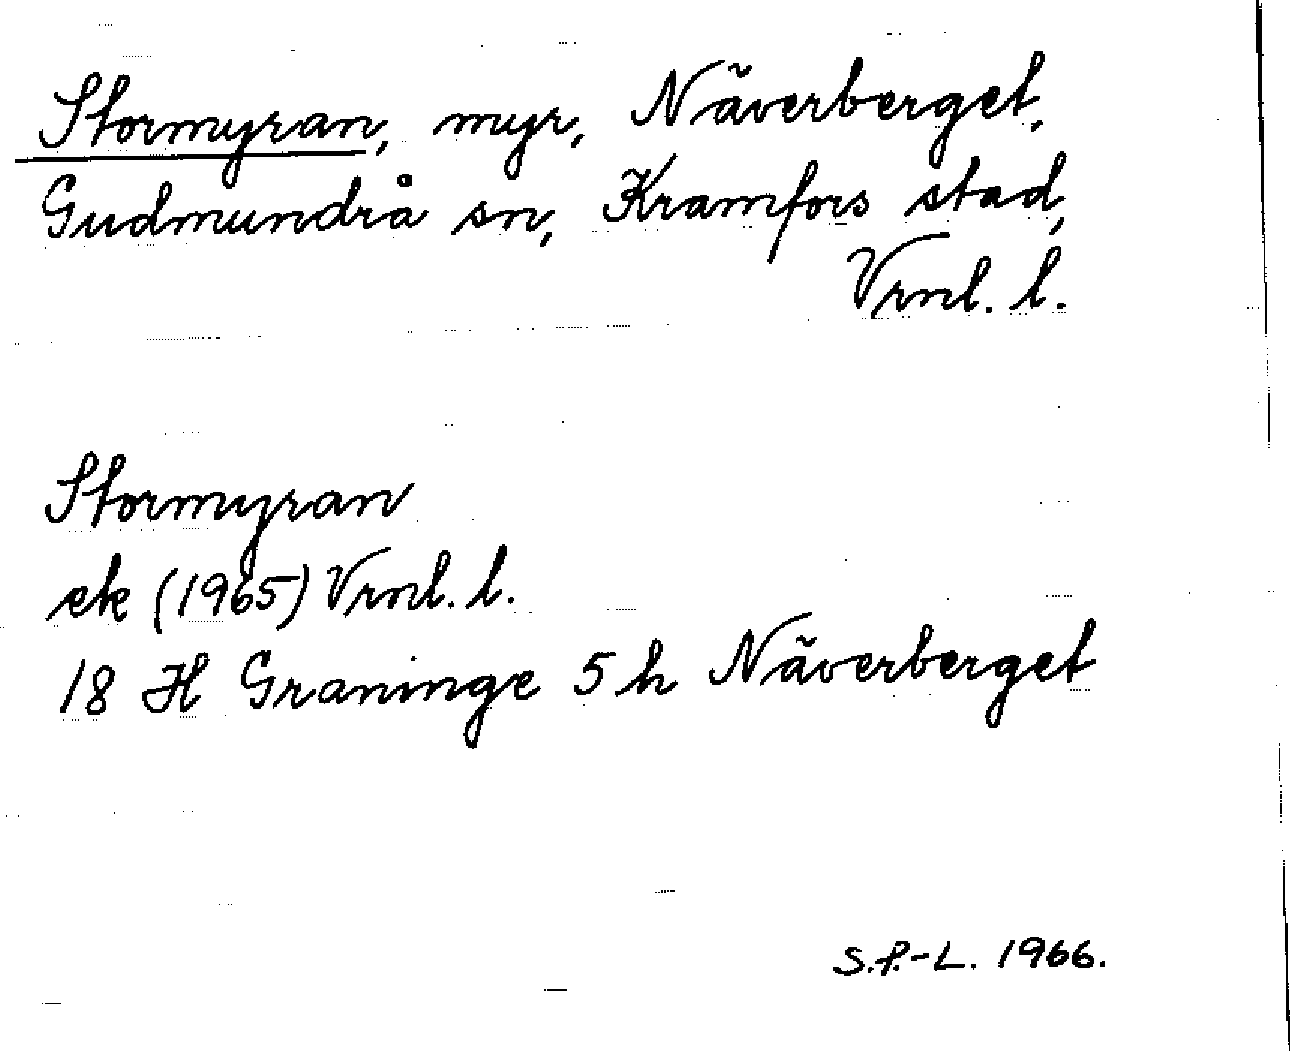 Stormyran, myr, Näverberget,
Gudmundrå sn, Kramfors stad,
Vrnl. l.
Stormyran
ek (1965) Vrnl. l.
18 H Graninge 5 h Näverberget
S.P.-L. 1966.